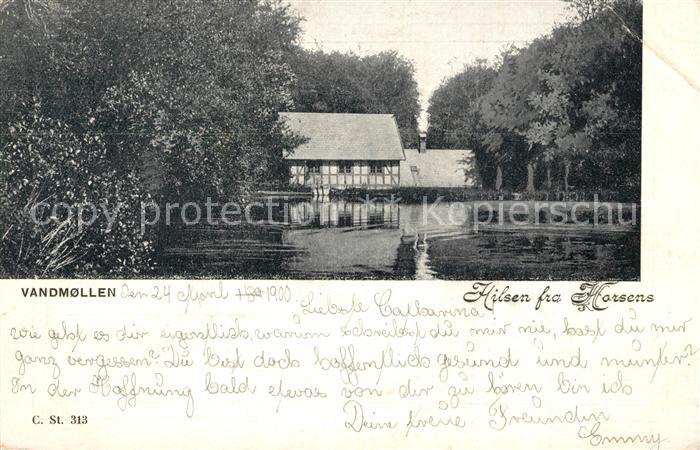 copy protection Kopierschutz
VANDMØLLEN den 24 April 1900. Hilsen fra Horsens
Liebste Catharina
wie geht es dir eigentlich, warum schreibst du mir nie, hast du mir
ganz vergessen? Du bist doch hoffentlich gesund und munter?
In der Hoffnung bald etwas von dir zu hören bin ich
C. St. 313 Deine treue Freundin
Emmy